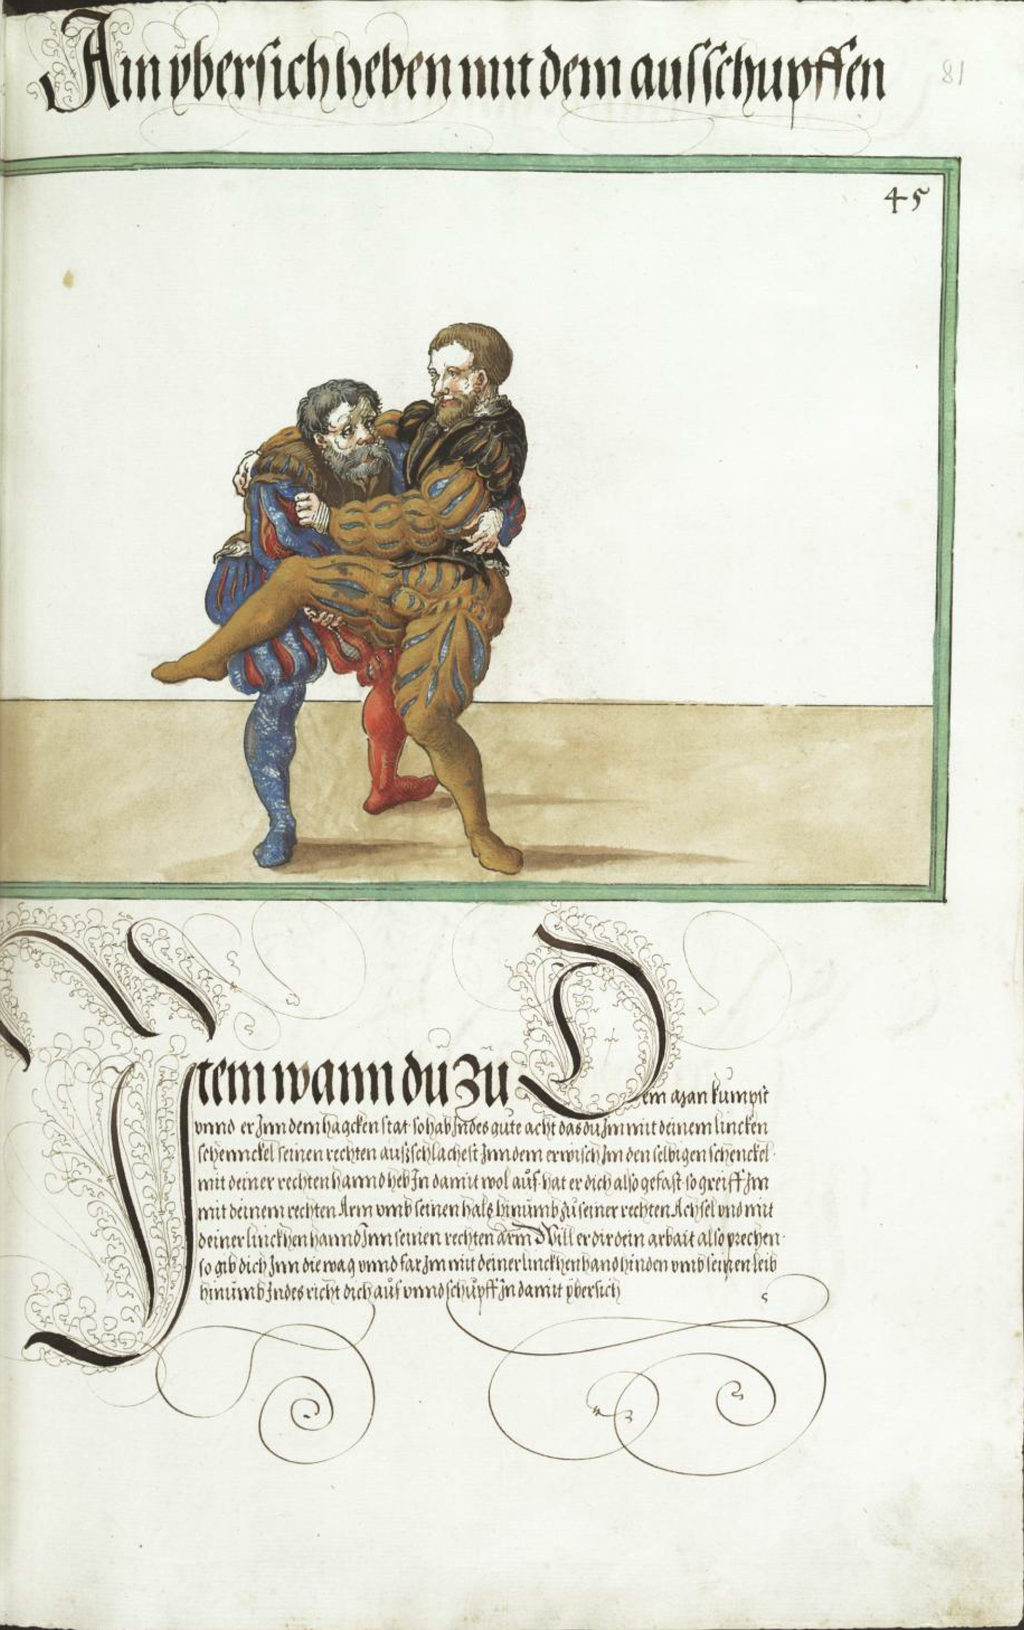 Ain ybersich heben mit dem ausschupffen
81
45
Item wann du Zu Dem Man kumpst
vnnd er Inn dem hagcken stat so hab Indes gute acht das du Im mit deinem lincken
schennckel seinen rechten außschlachest Inn dem erwisch Im den selbigen schenckel
mit deiner rechten hannd heb In damit wol auf. hat er dich also gefast so greiff Im
mit deinem rechten Arm vmb seinen halß hinumb zu seiner rechten Achsel vnd mit
deiner linckhen hannd Inn seinen rechten arm Will er dir dein arbait also prechen.
so gib dich Inn die wag vnnd far Im mit deiner linckhen hand hinden vmb seinen leib
hinumb Indes richt dich auf vnnd schupff In damit ybersich